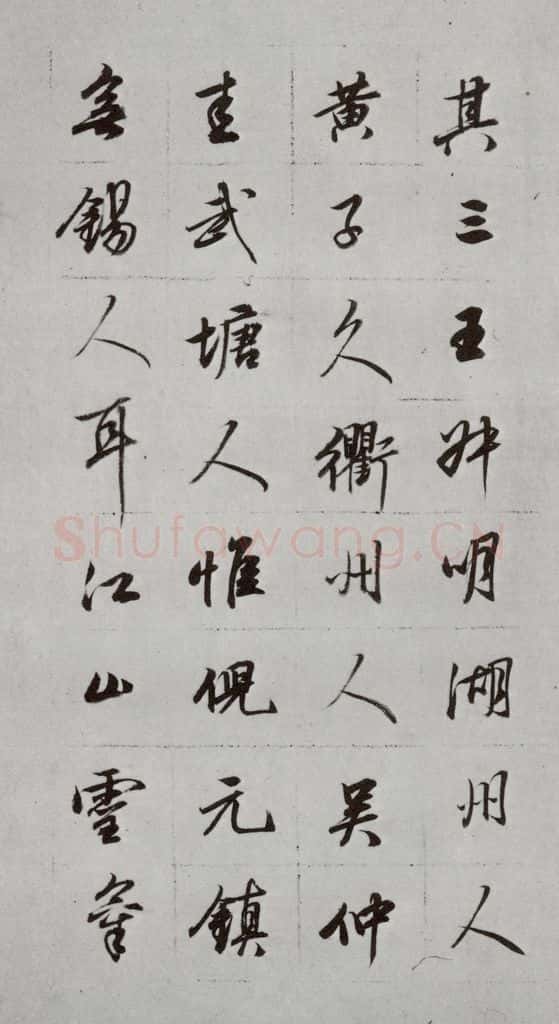 其三王叔明湖州人
黄子久衢州人吴仲
圭武塘人惟倪元鎮
無錫人耳江山靈氣
Shufawang.CN